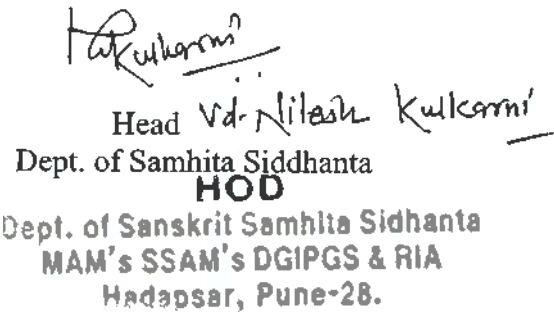 Kulkarni
Head Vd. Nilesh Kulkarni
Dept. of Samhita Siddhanta
HOD
Dept. of Sanskrit Samhita Sidhanta
MAM's SSAM's DGIPGS & RIA
Hadapsar, Pune-28.